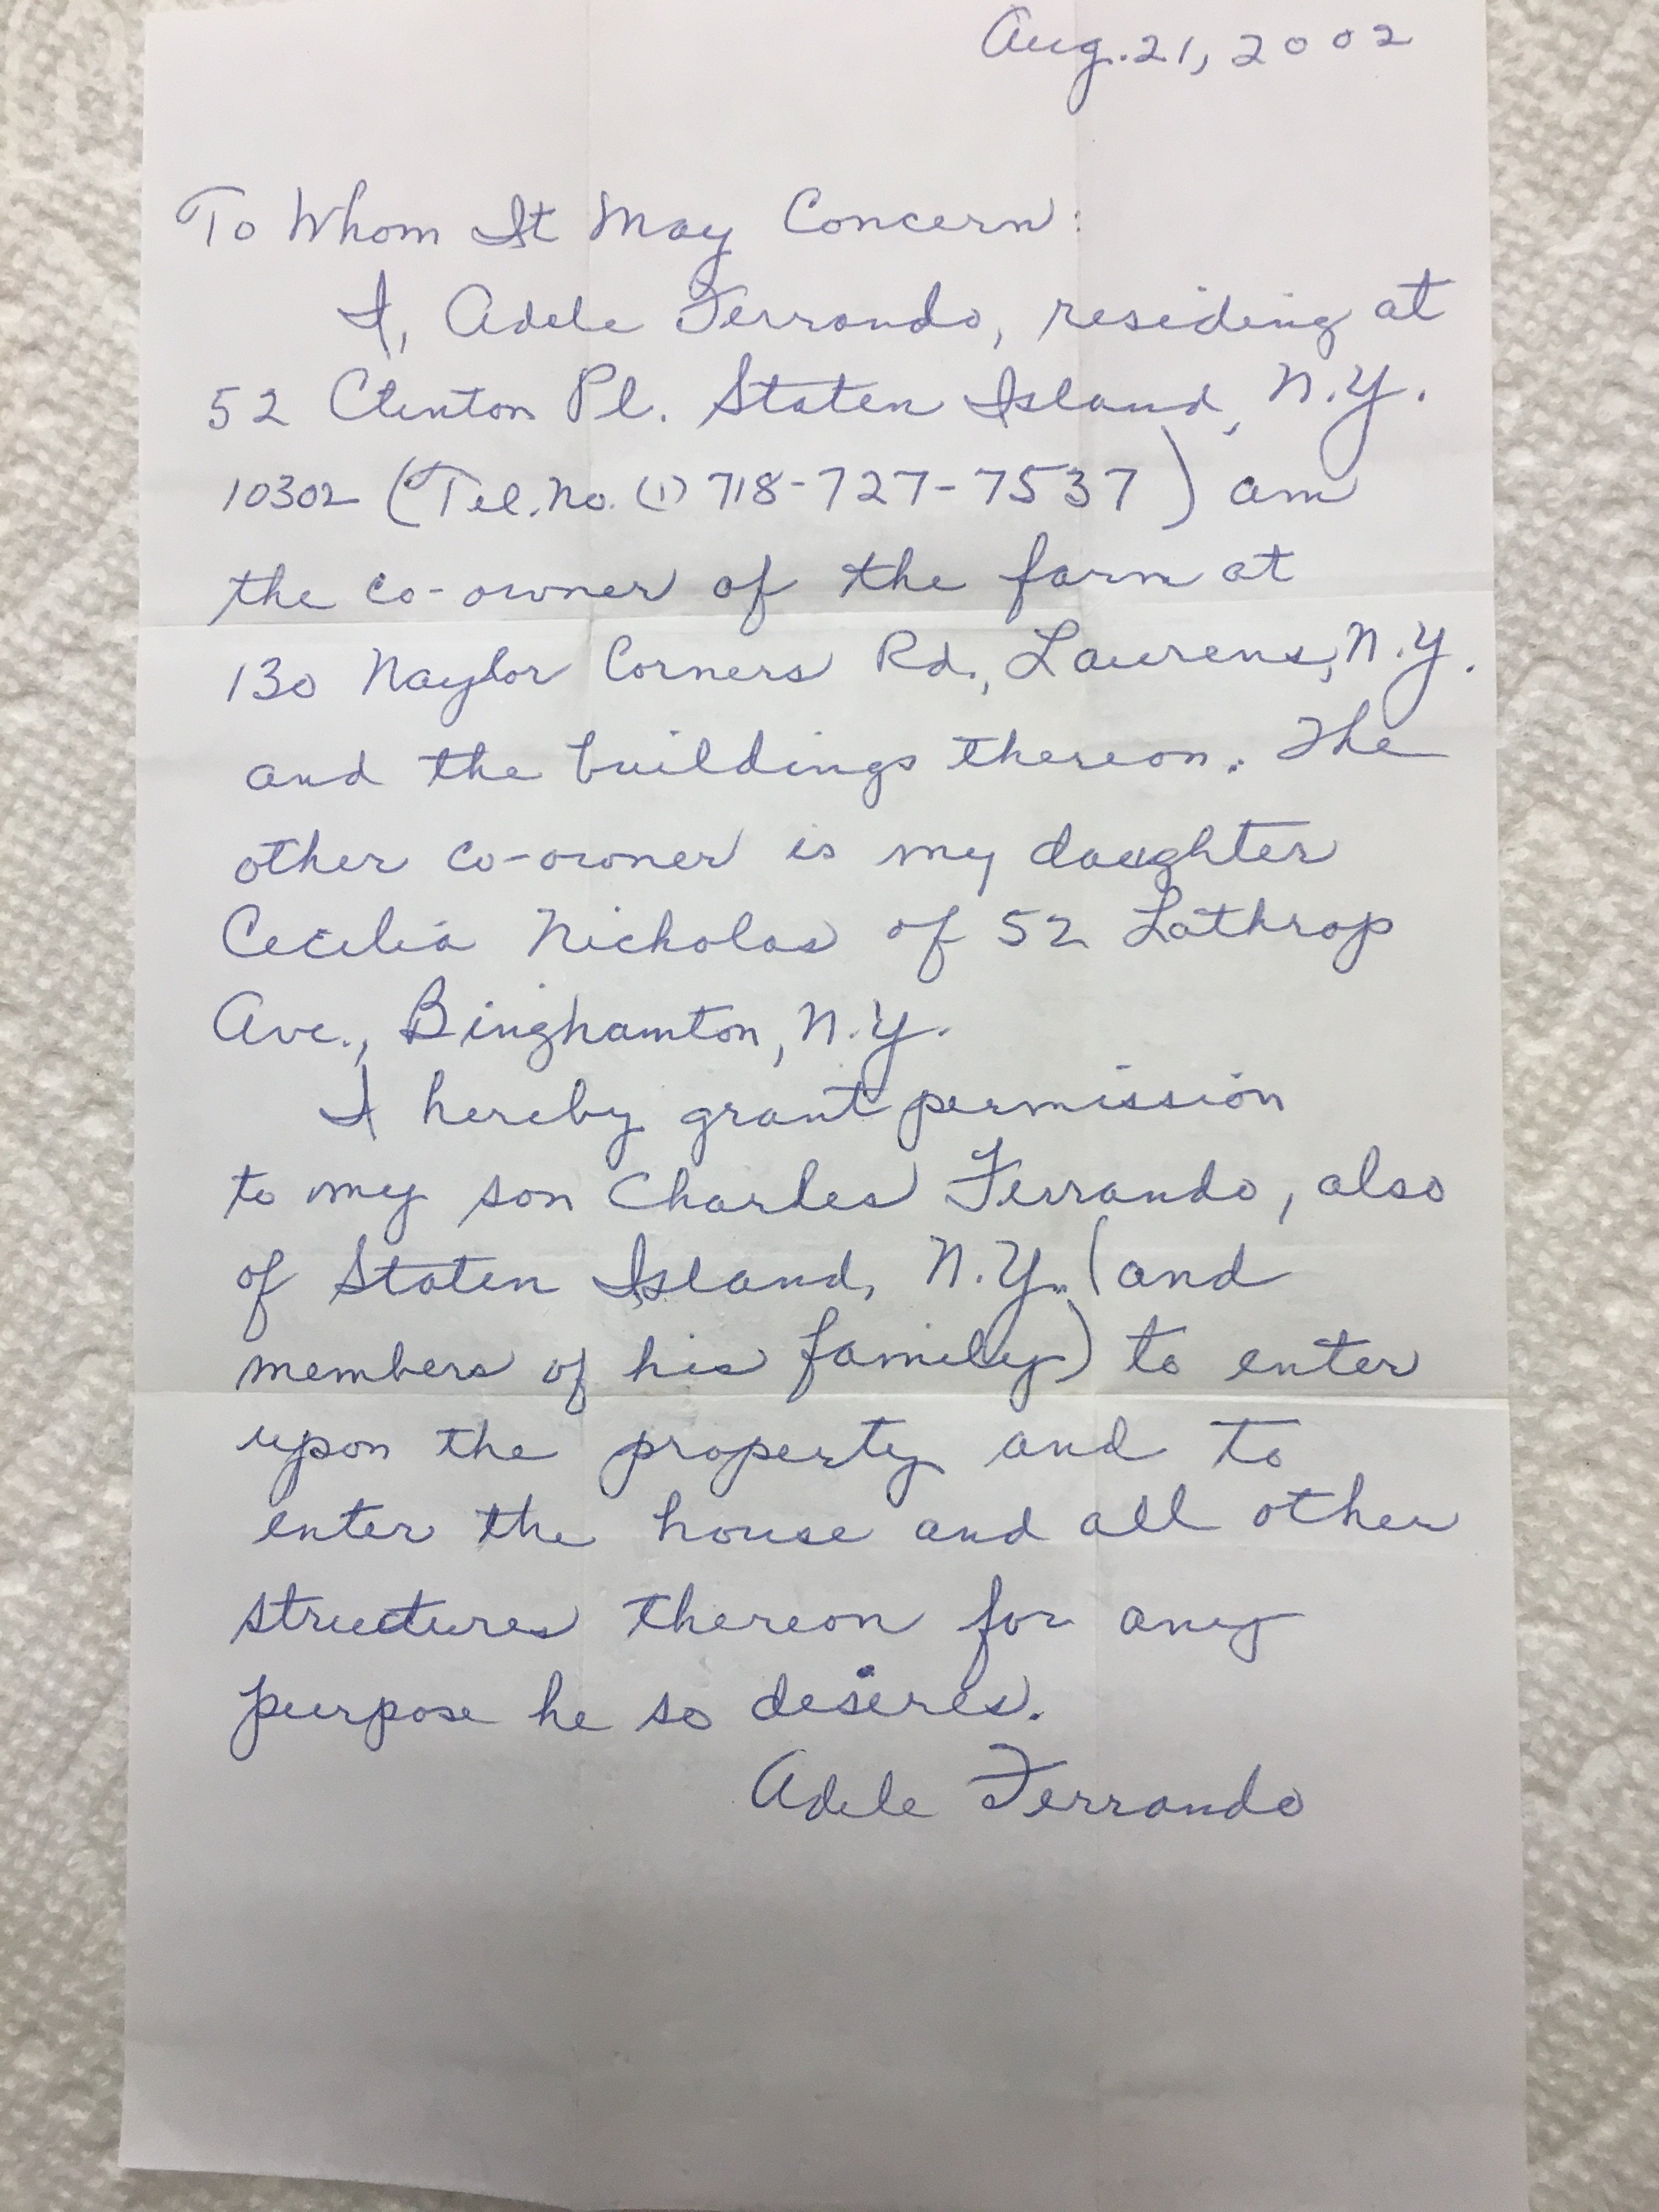 Aug. 21, 2002
To Whom It May Concern:
I, Adele Ferrando, residing at
52 Clinton Pl. Staten Island, N.Y.
10302 (Tel. No. (1) 718-727-7537) am
the co-owner of the farm at
130 Naylor Corners Rd., Laurens, N.Y.
and the buildings thereon. The
other co-owner is my daughter
Cecilia Nicholas of 52 Lathrop
Ave., Binghamton, N.Y.
I hereby grant permission
to my son Charles Ferrando, also
of Staten Island, N.Y. (and
members of his family) to enter
upon the property and to
enter the house and all other
structures thereon for any
purpose he so desires.
Adele Ferrando